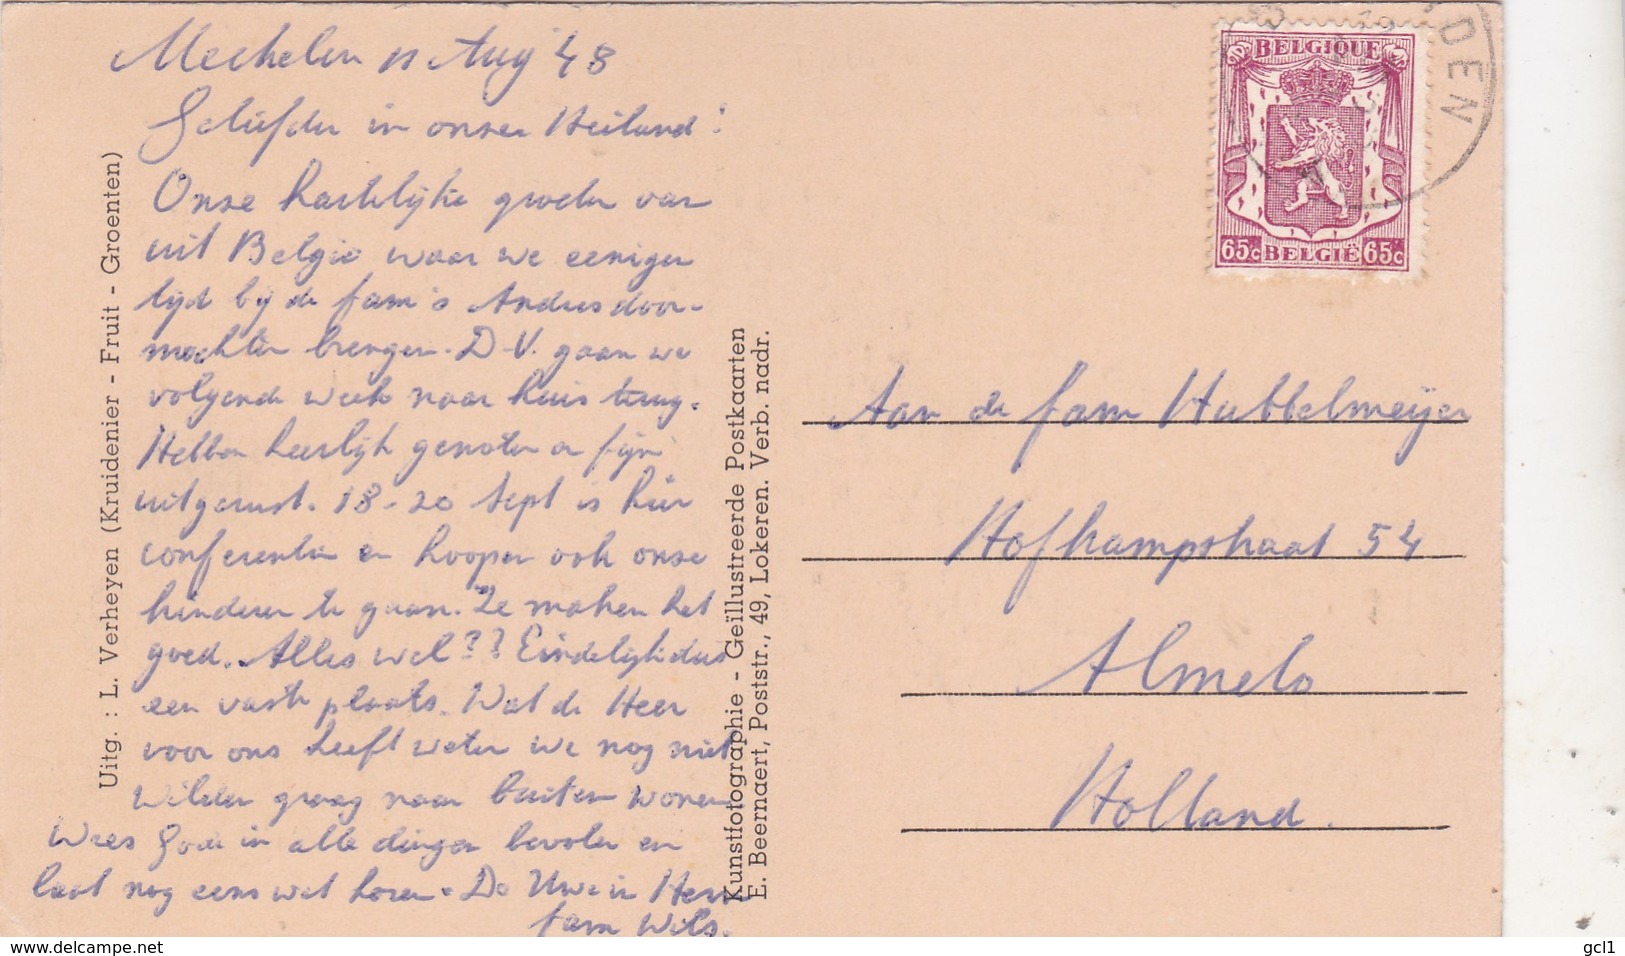 Mechelen 11 Aug '48
Geliefden in onzen Heiland!
Onze hartelijke groeten van
uit Belgie waar we eenigen
tijd bij de fam's Andries door-
mochten brengen. D-V. gaan we
volgende week naar huis terug.
Hebben heerlijk genoten en fijn
uitgerust. 18-20 Sept is hier
conferentie en hoopen ook onse
kinderen te gaan. Ze maken het
goed. Alles wel?? Eindelijk dus
een vaste plaats. Wat de Heer
voor ons heeft weten we nog niet
Wilden graag naar buiten wonen
Wees Gode in alle dingen bevolen en
laat nog eens wat horen. De Uwe in Hem
fam Wils.
Uitg. : L. Verheyen (Kruidenier - Fruit - Groenten)
Kunstfotographie - Geïllustreerde Postkaarten
E. Beernaert, Poststr., 49, Lokeren. Verb. nadr.
BELGIQUE
65c BELGIË 65c
DEN
Aan de fam Hubbelmeijer
Hofkampstraat 54
Almelo
Holland.
www.delcampe.net
gcl1